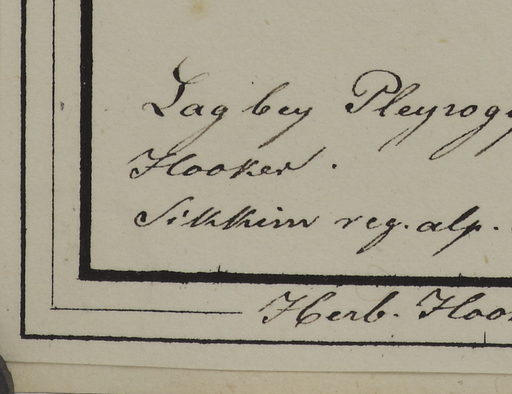 Lag bey Pleyrog
Hooker.
Sikkim reg. alp.
Herb. Hoo